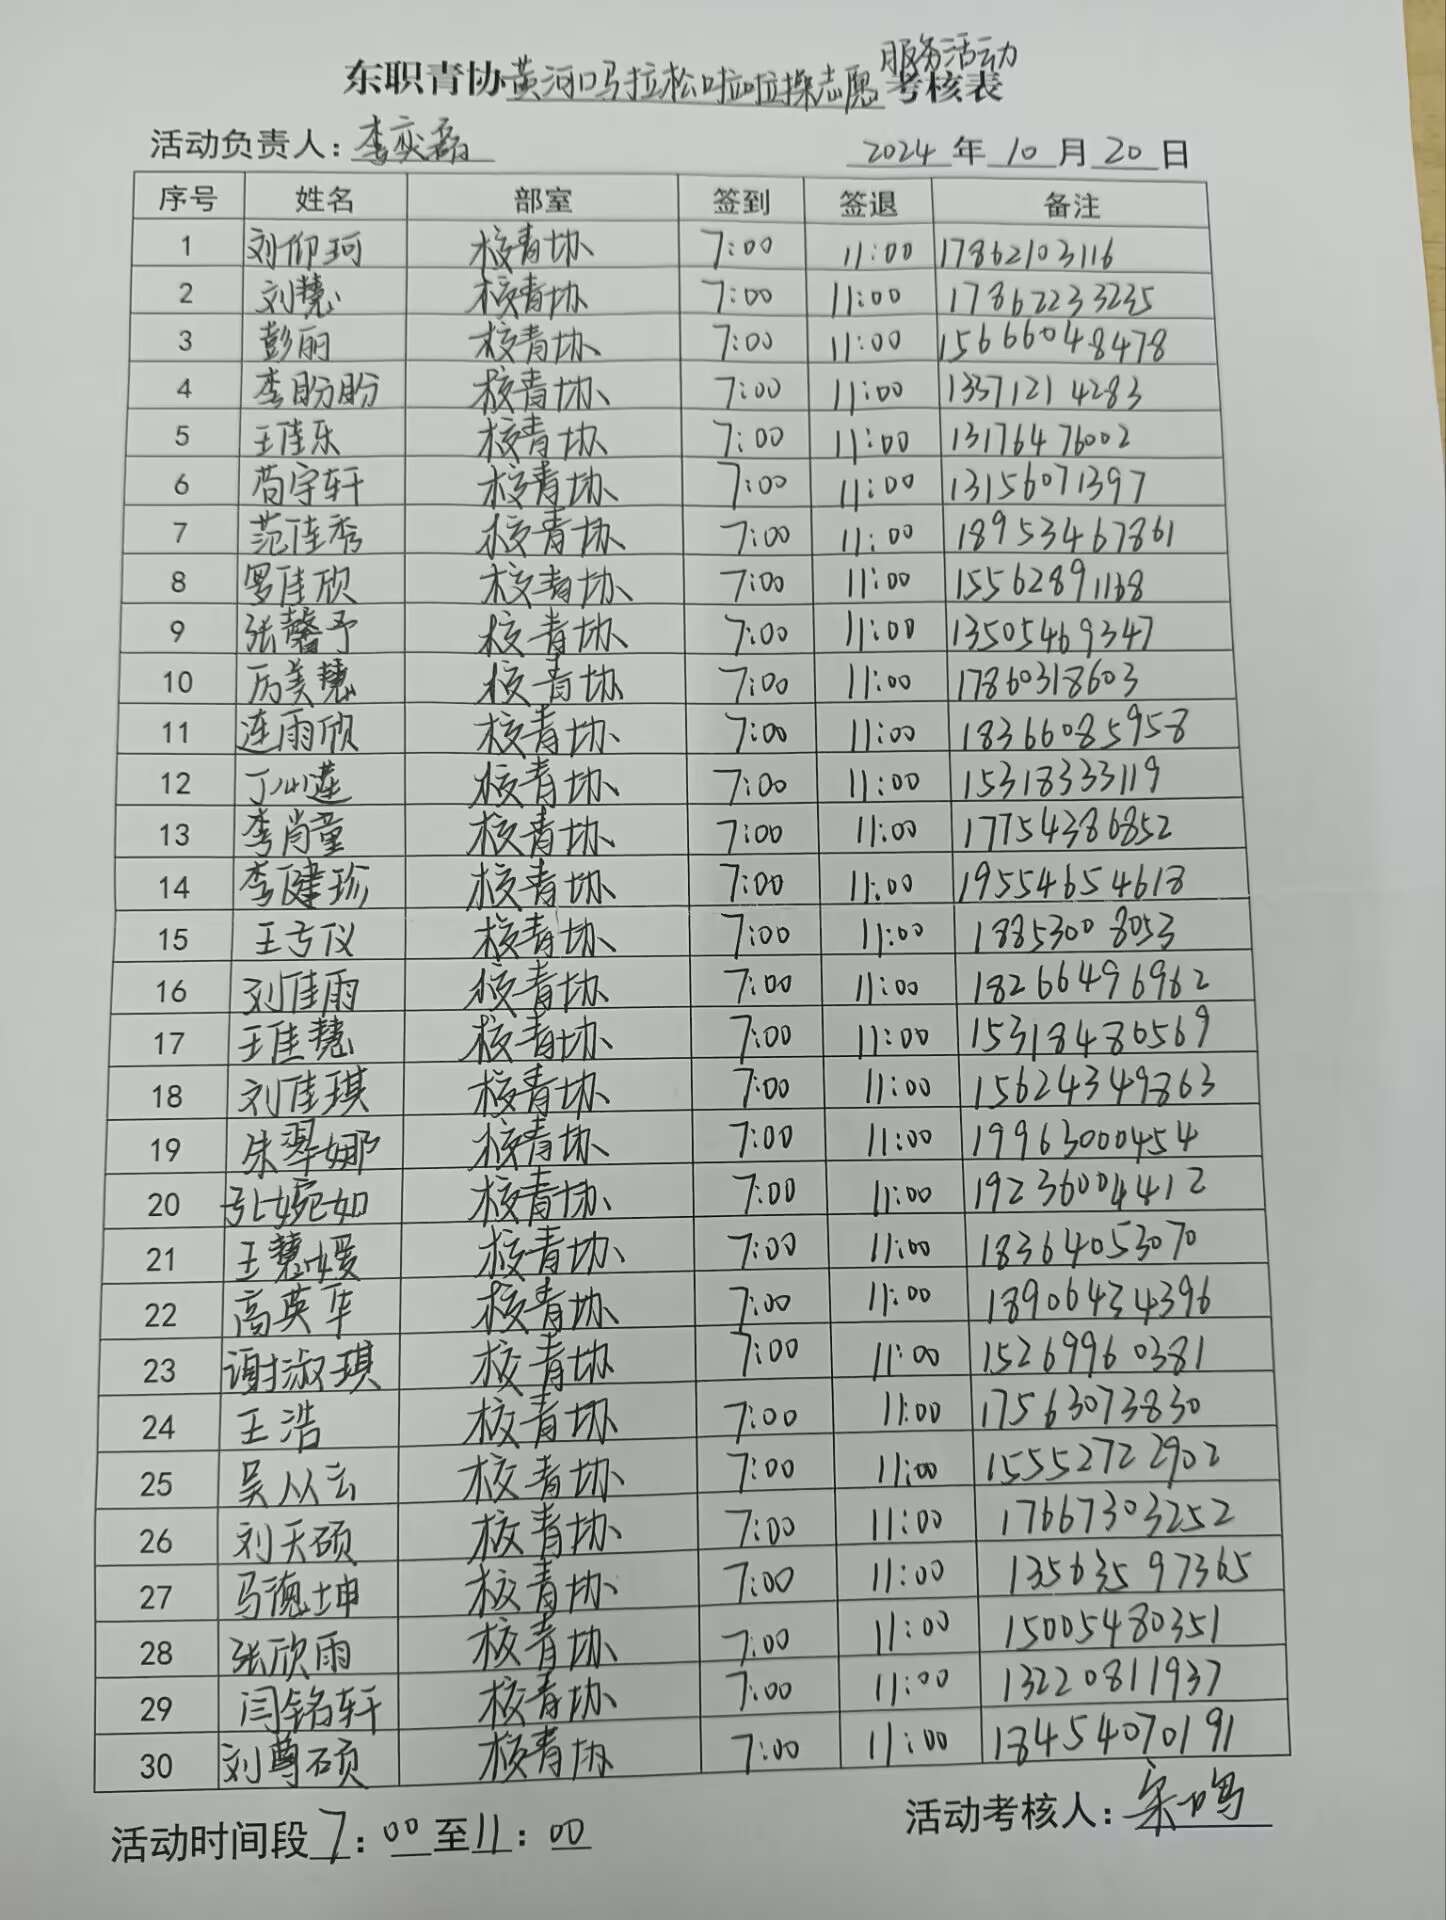 服务活动
东职青协黄河口马拉松啦啦操志愿考核表
活动负责人：李奕磊 2024年10月20日
序号 姓名 部室 签到 签退 备注
1 刘仰珂 校青协 7:00 11:00 17862103116
2 刘慧 校青协 7:00 11:00 17862233235
3 彭丽 校青协 7:00 11:00 15666048478
4 李盼盼 校青协 7:00 11:00 13371214283
5 王佳乐 校青协 7:00 11:00 13176476002
6 荀宇轩 校青协 7:00 11:00 13156071397
7 范佳秀 校青协 7:00 11:00 18953467861
8 罗佳欣 校青协 7:00 11:00 15562891168
9 张馨予 校青协 7:00 11:00 13505469347
10 厉美慧 校青协 7:00 11:00 17860318603
11 连雨欣 校青协 7:00 11:00 18366085958
12 丁心莲 校青协 7:00 11:00 15318333119
13 李肖童 校青协 7:00 11:00 17754386852
14 李健珍 校青协 7:00 11:00 19554654618
15 王亏仪 校青协 7:00 11:00 18853008053
16 刘佳雨 校青协 7:00 11:00 18266496962
17 王佳慧 校青协 7:00 11:00 15318480569
18 刘佳琪 校青协 7:00 11:00 15624349863
19 朱翠娜 校青协 7:00 11:00 19963000454
20 张婉如 校青协 7:00 11:00 19236004412
21 王慧媛 校青协 7:00 11:00 18364053070
22 高英华 校青协 7:00 11:00 18906434396
23 谢淑琪 校青协 7:00 11:00 15269960381
24 王浩 校青协 7:00 11:00 17563073830
25 吴从云 校青协 7:00 11:00 15552722902
26 刘天硕 校青协 7:00 11:00 17667303252
27 马德坤 校青协 7:00 11:00 13563597365
28 张欣雨 校青协 7:00 11:00 15005480351
29 闫铭轩 校青协 7:00 11:00 13220811937
30 刘尊硕 校青协 7:00 11:00 18454070191
活动时间段7：00至11：00 活动考核人：宋鸣